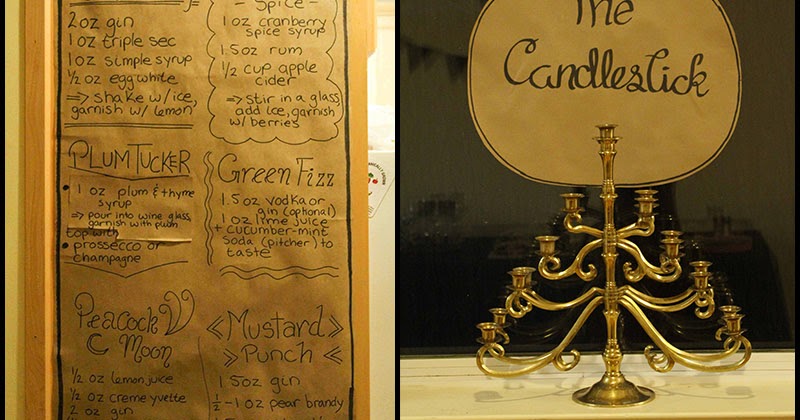 2 oz gin
1 oz triple sec
1 oz simple syrup
1/2 oz egg white
⇒ shake w/ ice,
garnish w/ lemon
- Spice -
1 oz cranberry
spice syrup
1.5 oz rum
1/2 cup apple
cider
⇒ stir in a glass,
add ice, garnish
w/ berries
PLUM TUCKER
• 1 oz plum & thyme
syrup
⇒ pour into wine glass,
garnish with plum
top with
• prossecco or
champagne
Green Fizz
1.5 oz vodka or
gin (optional)
1 oz lime juice
+ cucumber-mint
soda (pitcher) to
taste
Peacock
Moon
1/2 oz lemon juice
1/2 oz creme yvette
2 oz gin
«Mustard»
» Punch «
1.5oz gin
1/2 - 1 oz pear brandy
The
Candlestick